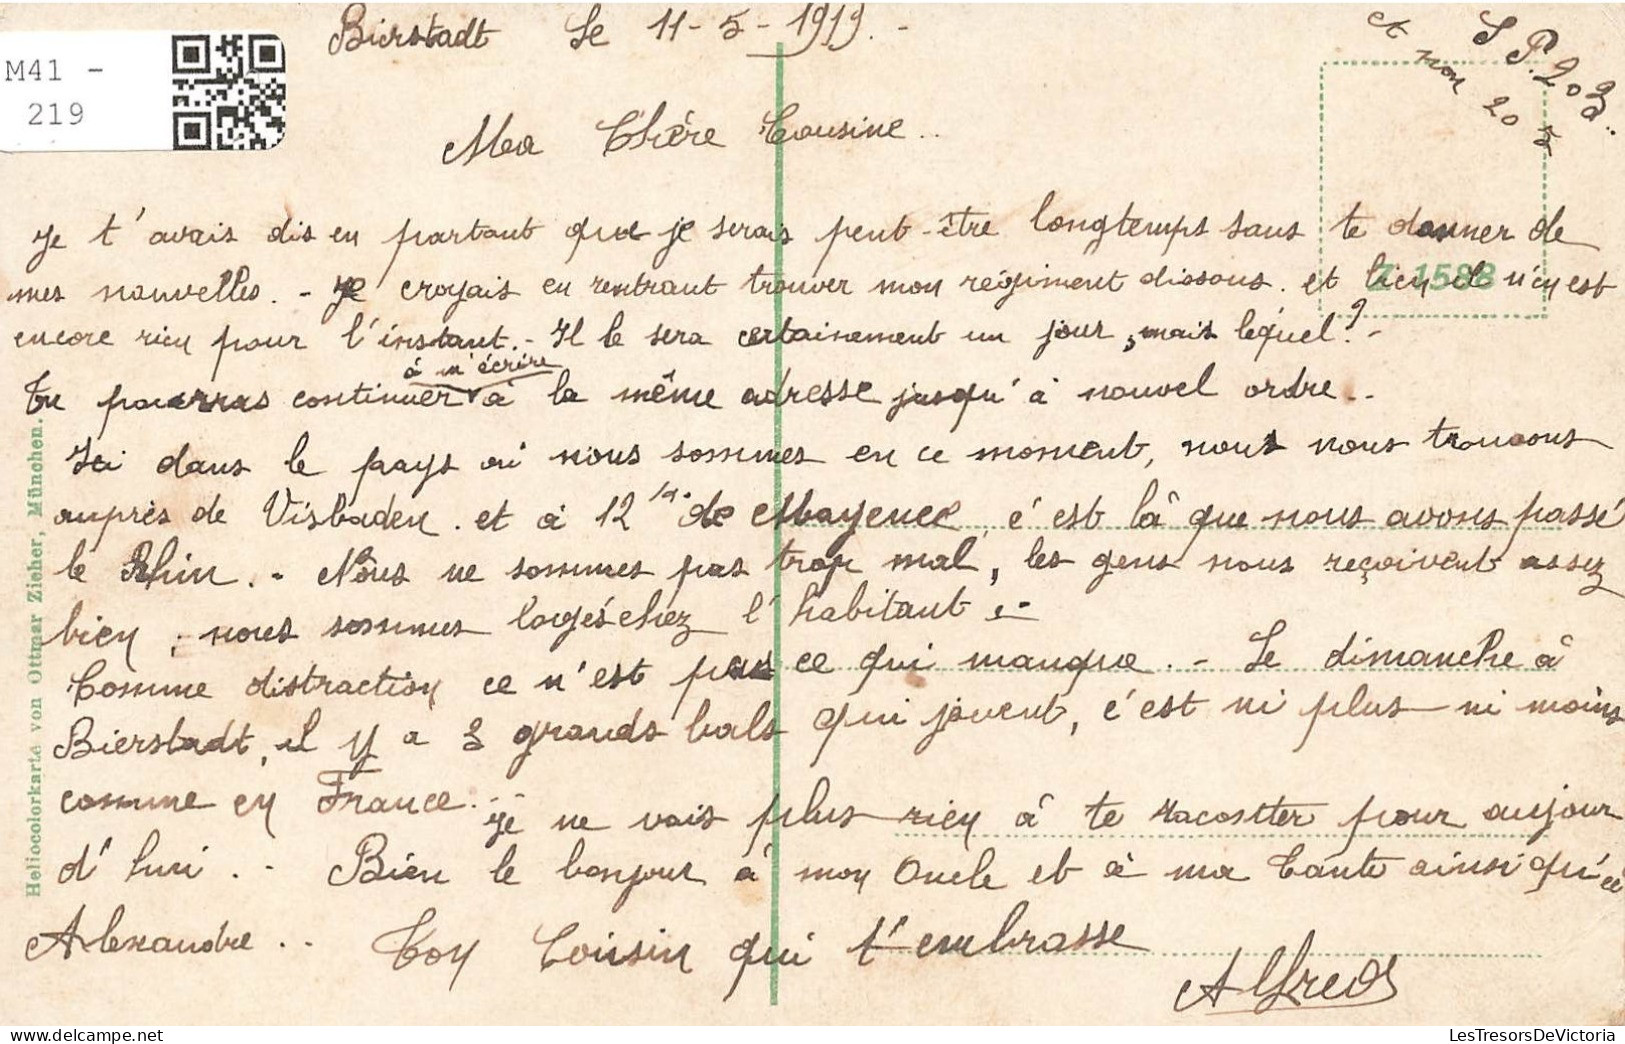 M41 -
219
Bierstadt le 11-5-1919.-
S P. 203..
et non 205
Ma Chère Cousine..
Je t'avais dis en partant que je serais peut-être longtemps sans te donner de
mes nouvelles. - Je croyais en rentrant trouver mon régiment dissous. et bien il n'en est
Z 1588
encore rien pour l'instant.- Il le sera certainement un jour, mais lequel? -
à m'écrire
Tu pourras continuer à la même adresse jusqu'à nouvel ordre..
Ici dans le pays où nous sommes en ce moment, nous nous trouvons
auprès de Visbaden. et à 12 km de Mayence, c'est là que nous avons passé
le Rhin. - Nous ne sommes pas trop mal, les gens nous reçoivent assez
bien, nous sommes logés chez l'habitant.-
Comme distraction ce n'est pas ce qui manque. - Le dimanche à
Bierstadt, il y a 3 grands bals qui jouent, c'est ni plus ni moins
comme en France...
Je ne vois plus rien à te racontter pour aujour
d'hui. - Bien le bonjour à mon Oncle et à ma Tante ainsi qu'à
Alexandre.. Ton Cousin qui t'embrasse
Alfred
Heliocolorkarte von Ottmar Zieher, München.
LesTresorsDeVictoria
www.delcampe.net